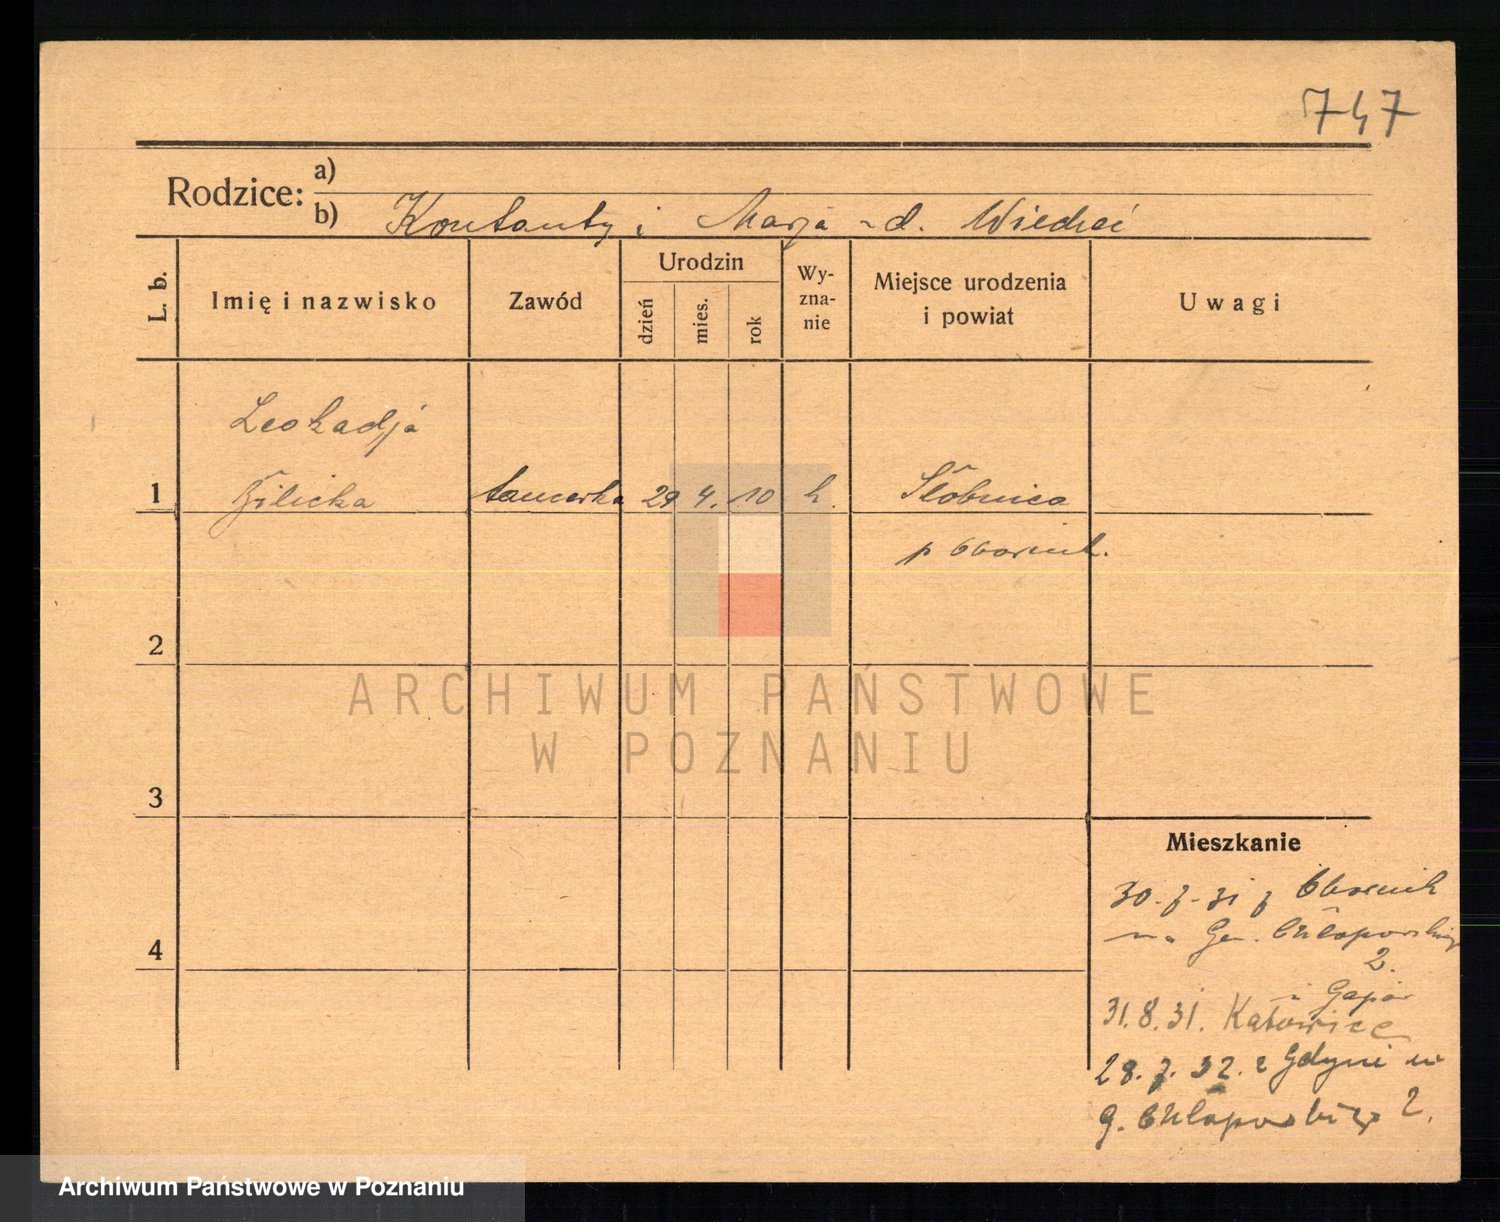 747
Rodzice: a)
b) Konstanty i Marja z d. Wiecheć
L. b.
Imię i nazwisko
Zawód
Urodzin
dzień
mies.
rok
Wy-
zna-
nie
Miejsce urodzenia
i powiat
Uwagi
Leokadja
1 Bilicka tancerka 29 4. 10 k. Słobnica
p Obornik.
2
ARCHIWUM PAŃSTWOWE
W POZNANIU
3
Mieszkanie
30.7.31 z Obornik
Chłapowskiego
2.
4
31.8.31. Katowice
28.7.32. z Gdyni
G. Chłapowskiego 2.
Archiwum Państwowe w Poznaniu